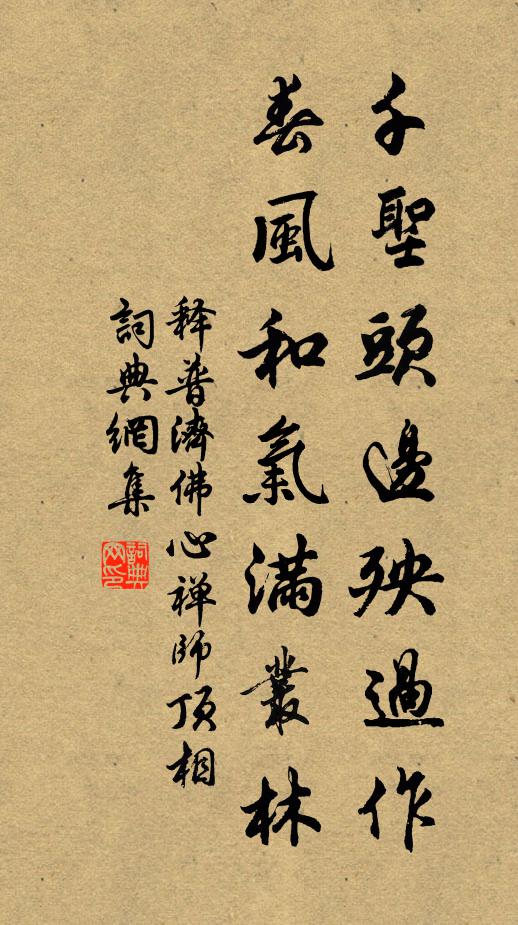 千聖頭邊殃過作
春風和氣滿叢林
释普濟佛心禅师顶相
詞典網集
詞典網印